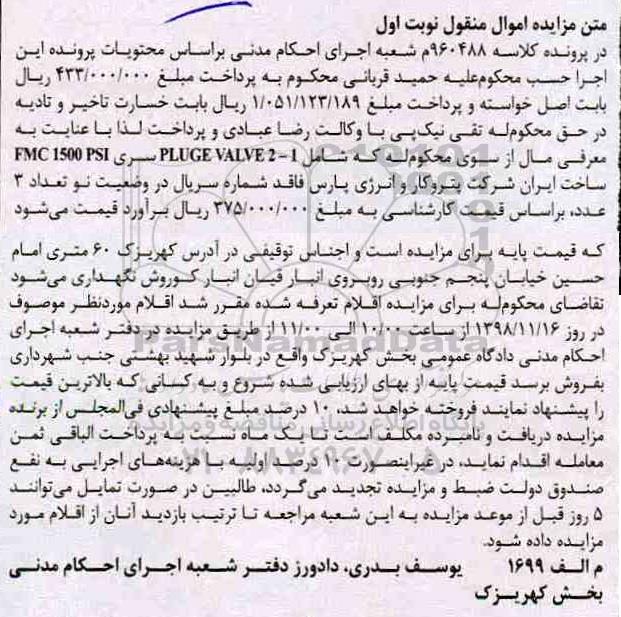 متن مزایده اموال منقول نوبت اول
در پرونده کلاسه ۹۶۰۴۸۸م شعبه اجرای احکام مدنی براساس محتویات پرونده این
اجرا حسب محکوم‌علیه حمید قربانی محکوم به پرداخت مبلغ ۴۳۳/۰۰۰/۰۰۰ ریال
بابت اصل خواسته و پرداخت مبلغ ۱/۰۵۱/۱۲۳/۱۸۹ ریال بابت خسارت تاخیر و تادیه
در حق محکوم‌له تقی نیک‌پی با وکالت رضا عبادی و پرداخت لذا با عنایت به
معرفی مال از سوی محکوم‌له که شامل PLUGE VALVE 2 – 1 سری FMC 1500 PSI
ساخت ایران شرکت پتروکار و انرژی پارس فاقد شماره سریال در وضعیت نو تعداد ۳
عدد، براساس قیمت کارشناسی به مبلغ ۳۷۵/۰۰۰/۰۰۰ ریال برآورد قیمت می‌شود
که قیمت پایه برای مزایده است و اجناس توقیفی در آدرس کهریزک ۶۰ متری امام
حسین خیابان پنجم جنوبی روبروی انبار قپان انبار کوروش نگهداری می‌شود
تقاضای محکوم‌له برای مزایده اقلام تعرفه شده مقرر شد اقلام موردنظر موصوف
در روز ۱۳۹۸/۱۱/۱۶ از ساعت ۱۰/۰۰ الی ۱۱/۰۰ از طریق مزایده در دفتر شعبه اجرای
احکام مدنی دادگاه عمومی بخش کهریزک واقع در بلوار شهید بهشتی جنب شهرداری
بفروش برسد قیمت پایه از بهای ارزیابی شده شروع و به کسانی که بالاترین قیمت
را پیشنهاد نمایند فروخته خواهد شد، ۱۰ درصد مبلغ پیشنهادی فی‌المجلس از برنده
مزایده دریافت و نامبرده مکلف است تا یک ماه نسبت به پرداخت الباقی ثمن
معامله اقدام نماید، در غیراینصورت ۱۰ درصد اولیه با هزینه‌های اجرایی به نفع
صندوق دولت ضبط و مزایده تجدید می‌گردد، طالبین در صورت تمایل می‌توانند
۵ روز قبل از موعد مزایده به این شعبه مراجعه تا ترتیب بازدید آنان از اقلام مورد
مزایده داده شود.
م الف ۱۶۹۹ یوسف بدری، دادورز دفتر شعبه اجرای احکام مدنی
بخش کهریزک